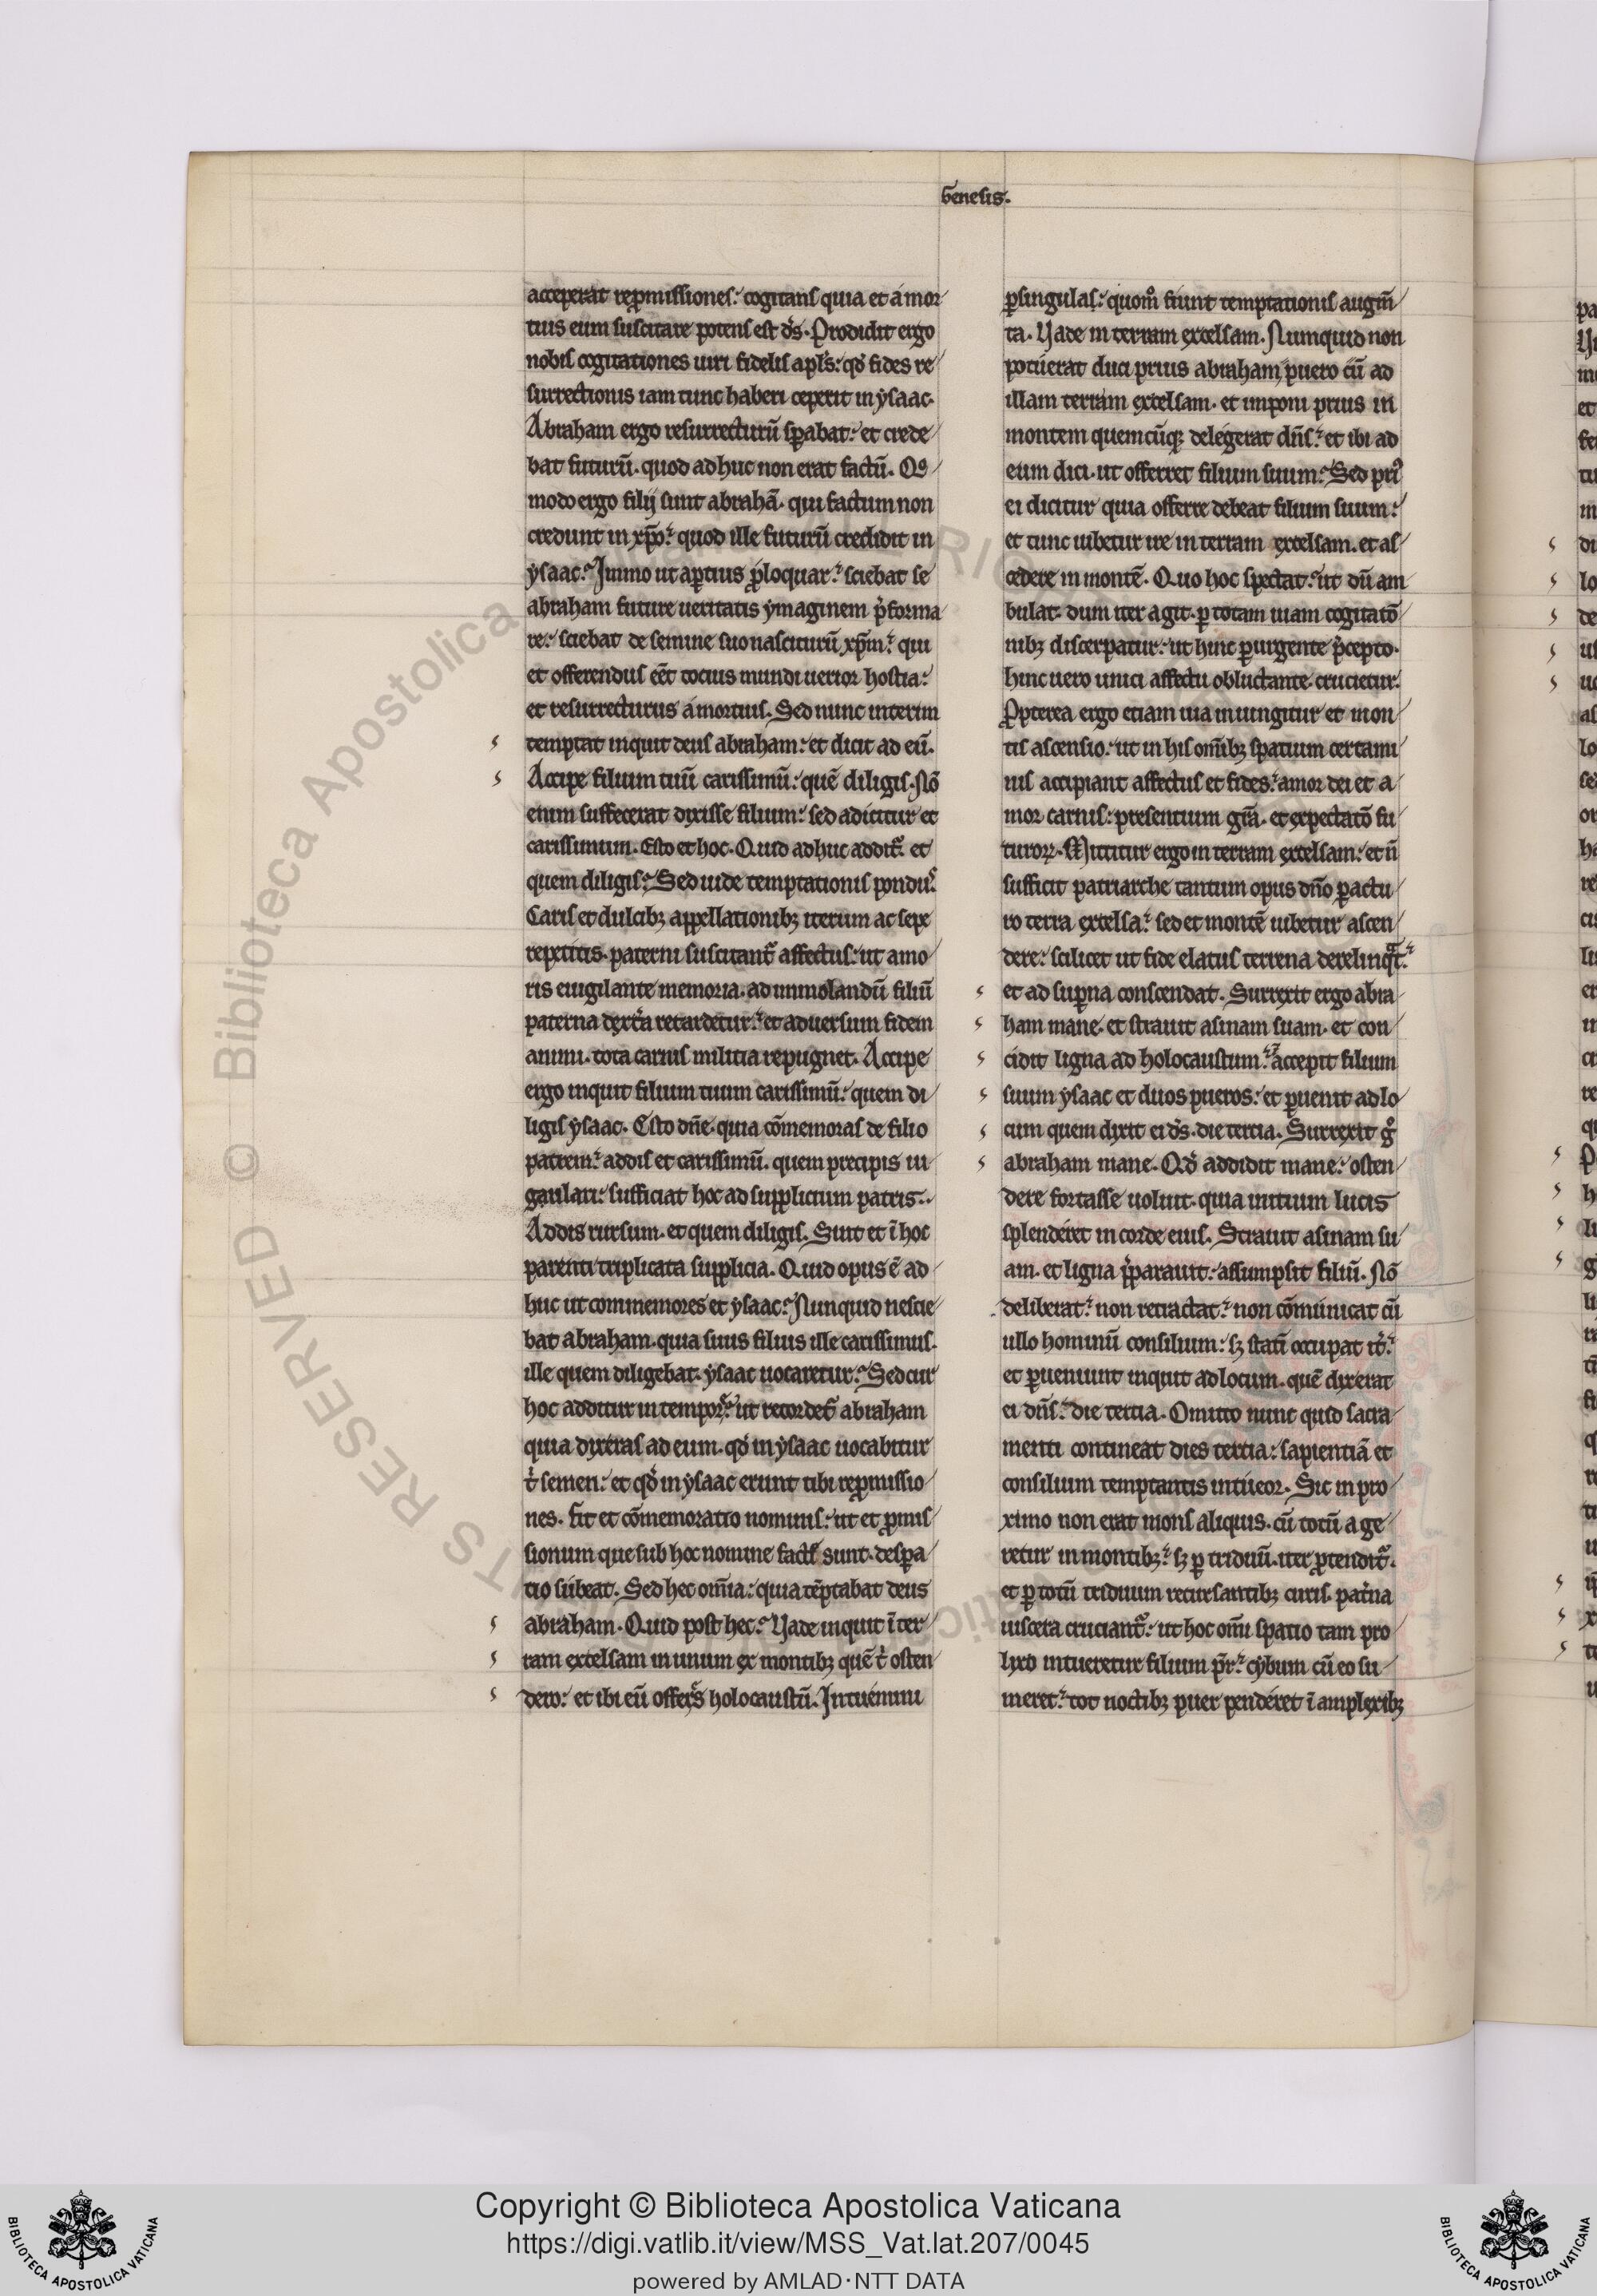 Genesis.
acceperat rep̱missiones: cogitans quia et a mor
tuis eum suscitare potens est ds̄. Prodidit ergo
nobis cogitationes uiri fidelis apls̄: qd̄ fides re
surrectionis iam tunc haberi ceperit in ysaac.
Abraham ergo resurrecturū sp̱abat: et crede
bat futurū. quod adhuc non erat factū. Qꝰ
modo ergo filij sunt abrahā. qui factum non
credunt in xp̄o: quod ille futurū credidit in
ysaac? Immo ut ap̱tius ꝓloquar: sciebat se
abraham future ueritatis ymaginem p̄forma
re: sciebat de semine suo nasciturū xp̄m: qui
et offerendus eēt tocius mundi uerior hostia:
et resurrecturus a mortuis. Sed nunc interim
temptat inquit deus abraham: et dicit ad eū.
Accipe filium tuū carissimū: quē diligis. Nō
enim suffecerat dixisse filium: sed adicitur et
carissimum. Esto et hoc. Quid adhuc addit᷑ et
quem diligis? Sed uide temptationis pondus.
Caris et dulcibꝫ appellationibꝫ iterum ac sepe
repetitis. paterni suscitant᷑ affectus: ut amo
ris euigilante memoria. ad immolandū filiū
paterna dextʼa retardetur: et aduersum fidem
animi. tota carnis militia repugnet. Accipe
ergo inquit filium tuum carissimū: quem di
ligis ysaac. Esto dn̄e. quia cōmemoras de filio
patrem: addis et carissimū. quem precipis iu
gulari: sufficiat hoc ad supplicium patris.
Addis rursum. et quem diligis. Sint et ī hoc
parenti triplicata supplicia. Quid opus ē ad
huc ut commemores et ysaac? Nunquid nescie
bat abraham. quia suus filius ille carissimus.
ille quem diligebat. ysaac uocaretur? Sed cur
hoc additur in tempore? ut recordet᷑ abraham
quia dixeras ad eum. qd̄ in ysaac uocabitur
tⁱ semen: et qd̄ in ysaac erunt tibi reꝓmissio
nes. Fit et cōmemoratio nominis: ut et ꝓmis
sionum que sub hoc nomine facte sunt. desp̱a
tio subeat. Sed hec om̄ia: quia tēptabat deus
abraham. Quid post hec? Uade inquit ī ter
ram excelsam in unum ex montibꝫ quē tⁱ osten
dero: et ibi eū offeres holocaustū. Intuemini
p̱ singulas: quomº fiunt temptationis augm̄
ta. Uade in terram excelsam. Numquid non
potuerat duci prius abraham puero cū ad
illam terram excelsam. et imponi prius in
montem quemcūqꝫ delegerat dn̄s: et ibi ad
eum dici. ut offerret filium suum? Sed priꝰ
ei dicitur quia offerre debeat filium suum:
et tunc iubetur ire in terram excelsam. et as
cedere in montē. Quo hoc spectat? ut dū am
bulat. dum iter agit. p̱ totam uiam cogitatō
nibꝫ discerpatur: ut hinc p̱urgente p̄cepto.
hinc uero unici affectu obluctante. crucietur.
Ꝓpterea ergo etiam uia iniungitur et mon
tis ascensio: ut in his om̄ibꝫ spatium certami
nis accipiant affectus et fides: amor dei et a
mor carnis: presentium gr̄a. et expectatō fu
turoꝝ. Mittitur ergo in terram excelsam: et n̄
sufficit patriarche tantum opus dn̄o p̱actu
ro terra excelsa: sed et montē iubetur ascen
dere: scilicet ut fide elatus terrena derelinqᵃt:
et ad sup̱na conscendat. Surrexit ergo abra
ham mane. et strauit asinam suam. et con
cidit ligna ad holocaustum: ⁊ accepit filium
suum ysaac et duos pueros: et p̱uenit ad lo
cum quem dixit ei ds̄. die tercia. Surrexit gº
abraham mane. Qd̄ addidit mane: osten
dere fortasse uoluit. quia initium lucis
splenderet in corde eius. Strauit asinam su
am. et ligna p̄parauit: assumpsit filiū. Nō
deliberat: non retractat: non cōmunicat cū
ullo hominū consilium: sꝫ statī occupat itʼ:
et p̱ueniunt inquit ad locum. quē dixerat
ei dn̄s: die tercia. Omitto nunc quid sacra
menti contineat dies tercia: sapientiā et
consilium temptantis intueor. Sic in pro
ximo non erat mons aliquis. cū totū age
retur in montibꝫ: sꝫ p̱ triduū. iter ꝓtendit᷑.
et p̱ totū triduum recursantibꝫ curis. patʼna
uiscera cruciant᷑: ut hoc om̄i spatio tam pro
lixo intueretur filium pr̄: cybum cū eo su
meret: tot noctibꝫ puer penderet ī amplexibꝫ
Copyright © Biblioteca Apostolica Vaticana
https://digi.vatlib.it/view/MSS_Vat.lat.207/0045
powered by AMLAD·NTT DATA